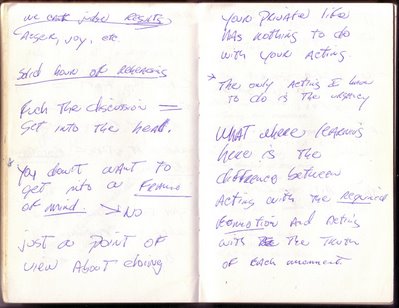 we can't play RESULTS
Anger, Joy, etc
Solid hour of rehearsing
Fuck the discussion =
Get into the head.
* You don't want to
get into a Frame
of mind. > NO
just a point of
view About doing
your private life
has nothing to do
with your Acting
* The only Acting I have
to do is the urgency
WHAT where learning
here is the
difference between
Acting with the required
Emotion And Acting
with The Truth
of Each moment.